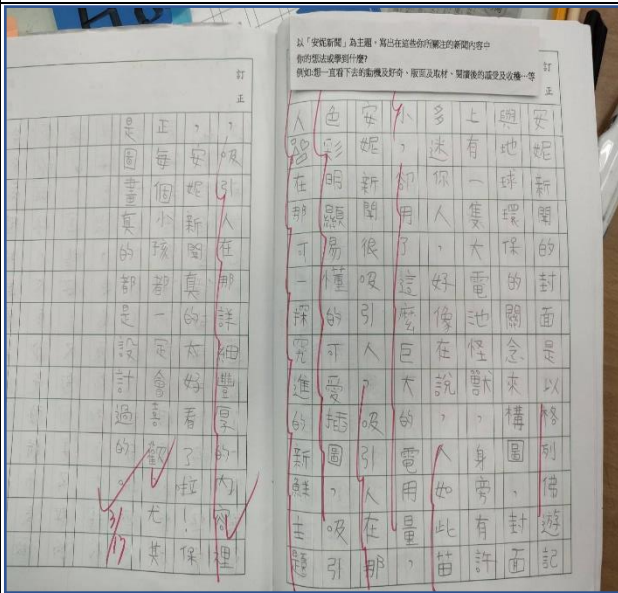 以「安妮新聞」為主題，寫出在這些你所關注的新聞內容中
你的想法或學到什麼?
例如:想一直看下去的動機及好奇、版面及取材、閱讀後的感受及收穫…等
訂正
安妮新聞的封面是以格列佛遊記
與地球環保的關念來構圖，封面
上有一隻大電池怪獸，身旁有許
多迷你人，好像在說，人如此苗
小，卻用了這麼巨大的電用量，
安妮新聞很吸引人，吸引人在那
色彩明顯易懂的可愛插圖，吸引
人在那可一探究進的新鮮主題
訂正
吸引人在那詳細豐厚的內容裡
，安妮新聞真的太好看了啦！保
正每個小孩都一定會喜歡，尤其
是圖畫真的都是設計過的。
3/17